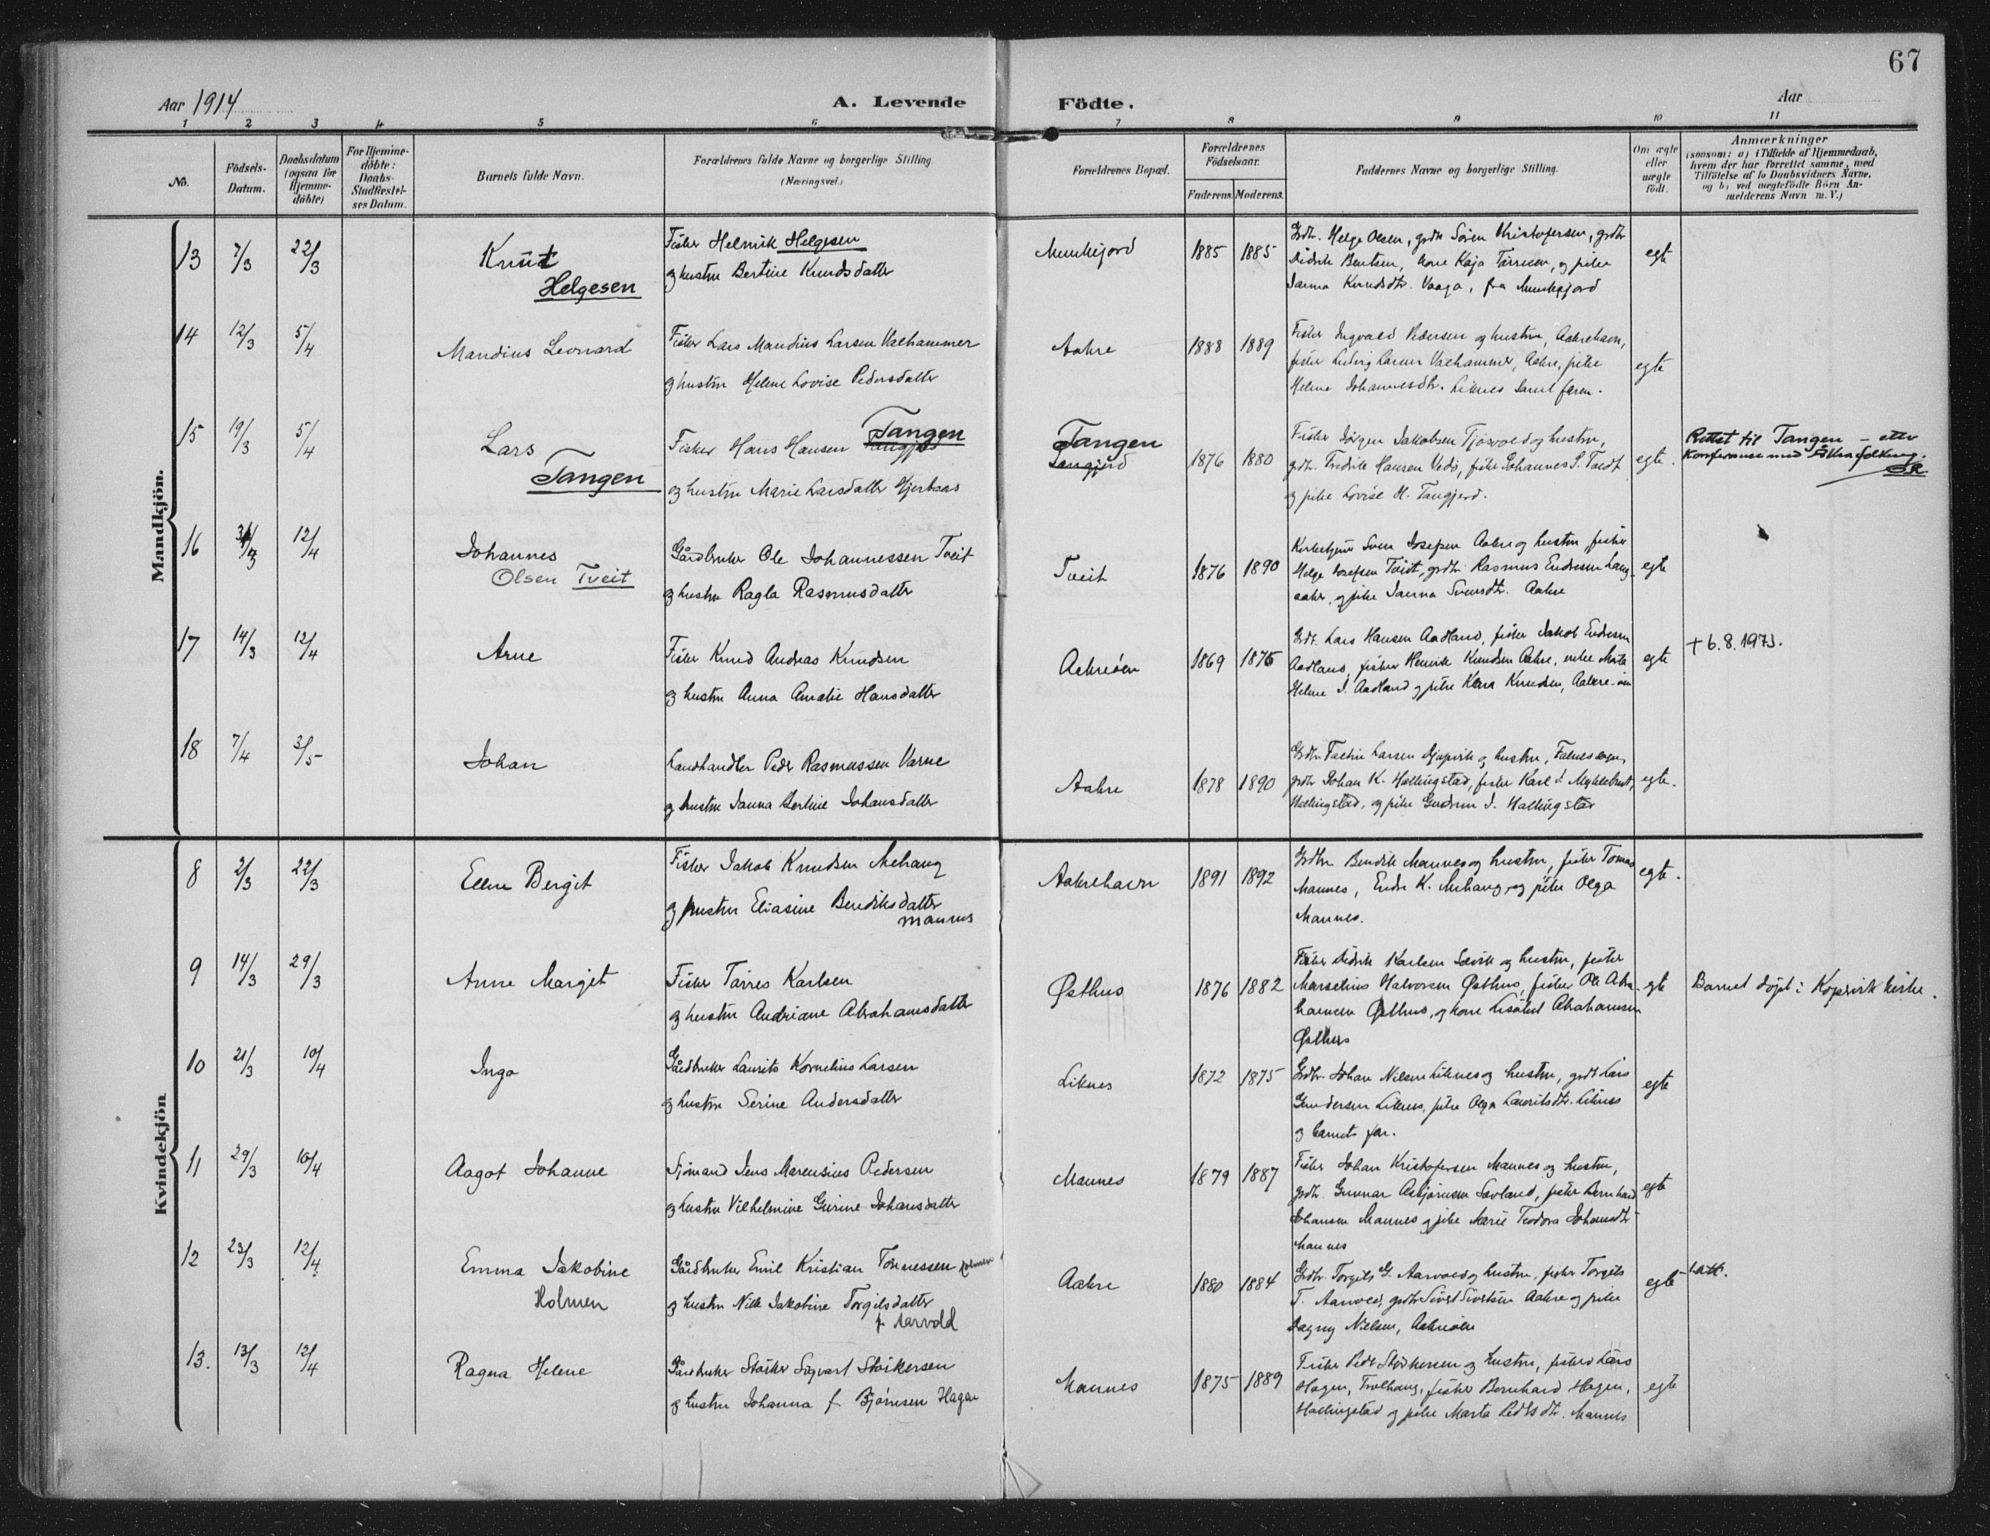 67
Aar 1914
A. Levende Födte.
Aar
1 2 3 4 5 6 7 8 9 10 11
No.
Födsels-
Datum.
Daabsdatum
(ogsaa for
Hjemme-
döbte)
For Hjemme-
döbte:
Daabs-
Stadfæstel-
ses Datum.
Barnets fulde Navn.
Forældrenes fulde Navne og borgerlige Stilling.
(Næringsvei.)
Forældrenes Bopæl.
Forældrenes
Födselsaar.
Faderens. Moderens.
Faddernes Navne og borgerlige Stilling.
Om ægte
eller
uægte
födt.
Anmærkninger
(saasom: a) i Tilfælde af Hjemmedaab,
hvem der har forrettet samme, med
Tilföielse af to Daabsvidners Navne,
og b) ved uægtefödte Börn An-
melderens Navn m. V.)
Mandkjön.
13 7/3 22/3 Knut
Helgesen
Fisker Helmik Helgesen
og hustru Bertine Knudsdatter
Munkejord 1885 1885
Grdbr. Helge Olsen, grdbr Sören Kristofersen, grdbr
Didrik Bentsen, kone Kaja Tarresen, og pike
Janna Knudsdtr. Vaaga, fra Munkejord
egte
14 12/3 5/4 Mandius Leonard
Fisker Lars Mandius Larsen Vaehammer
og hustru Helene Lovise Pedersdatter
Aakre 1888 1889
Fisker Ingvald Pedersen og hustru, Aakrehavn,
fisker Ludvig Larsen Vaehammer, Aakre, pike
Helene Johannesdtr. Liknes samt faren.
egte
15 19/3 5/4 Lars
Tangen
Fisker Hans Hansen Tangen
og hustru Marie Larsdatter Hjertaas
Tangen
Tangjerd
1876 1880
Fisker Jörgen Jakobsen Tjösvold og hustru,
grdbr. Fredrik Hansen Vedø, pike Johannes S. Tvedt
og pike Lovise H. Tangjerd.
egte.
Rettet til Tangen – etter
konferanse med
16 31/3 12/4 Johannes
Olsen Tveit
Gårdbruker Ole Johannessen Tveit
og hustru Ragla Rasmusdatter
Tveit 1876 1890
Kirketjener Sven Josefsen Aakre og hustru, fisker
Helge Josefsen Tveit, grdbr Rasmus Endresen Lang-
aaker, og pike Janna Svensdtr. Aakre
egte
17 14/3 12/4 Arne
Fisker Knud Andreas Knudsen
og hustru Anna Amalie Hansdatter
Aakreøen 1869 1875
Grdbr. Lars Hansen Aadland, fisker Jakob Endresen
Aadland, fisker Henrik Knudsen Aakre, enke Marta
Helene J. Aadland og pike Klara Knudsen, Aakre-øen
egte
+ 6.8.1973.
18 7/4 3/5 Johan
Landhandler Peder Rasmussen Varne
og hustru Janna Bertine Johansdatter
Aakre 1878 1890
Grdbr Larsen og hustru, Falnes sogn,
grdbr Johan K. Hallingstad, fisker Karl J. Myklebust,
Hallingstad, og pike Gudrun J. Hallingstad
egte.
Kvindekjön
8 2/3 22/3 Ellen Bergit
Fisker Jakob Knudsen Mehaug
og hustru Eliasine Bendiksdatter
Mannes
Aakrehavn 1891 1892
Grdbr Bendik Mannes og hustru, fisker Tomas
Mannes, Endre K. Mehaug, og pike Olga
Mannes.
egte.
9 14/3 29/3 Anne Margit
Fisker Tarres Karlsen
og hustru Andriane Abrahamsdatter
Østhus 1876 1882
Fisker Didrik Karlsen Sævik og hustru, fisker
Marselius Halvorsen Østhus, fisker Ole Abra-
hamsen Østhus, og kone Lisabet Abrahamsen
Østhus
egte
Barnet døpt i Kopervik kirke.
10 21/3 10/4 Inga
Gårdbruker Laurits Kornelius Larsen
og hustru Serine Andersdatter
Liknes 1872 1875
Grdbr. Johan Nilsen Liknes og hustru, grdbr Lars
Gundersen Liknes, pike Olga Lauritsdtr. Liknes
og barnets far.
egte
11 29/3 10/4 Aagot Johanne
Sjömand Jens Marensius Pedersen
og hustru Vilhelmine Gurine Johansdatter
Mannes 1879 1887
Fisker Johan Kristofersen Mannes og hustru,
grdbr. Gunnar Asbjörnsen Sævland, fisker Bernhard
Johansen Mannes og pike Marie Teodora Johansdtr
Mannes
egte
12 23/3 12/4 Emma Jakobine
Holmen
Gårdbruker Emil Kristian Tönnessen Holmen
og hustru Nille Jakobine Torgilsdatter
f. Aarvold
Aakre 1880 1884
Grdbr Torgils G. Aarvold og hustru, fisker Torgils
T. Aarvold, grdbr Sivert Sivertsen Aakre og pike
Dagny Nielsen, Aakreøen
egte
13. 13/3 12/4 Ragna Helene
Gårdbruker Staiker Sigvart Staikersen
og hustru Johanna f. Bjørnsen Hagen
Mannes 1875 1889
Fisker Peder Staikersen og hustru, fisker Lars
Hagen, Trolhaug, fisker Bernhard Hagen,
Hallingstad og pike Marta Pedersdtr. Mannes
egte